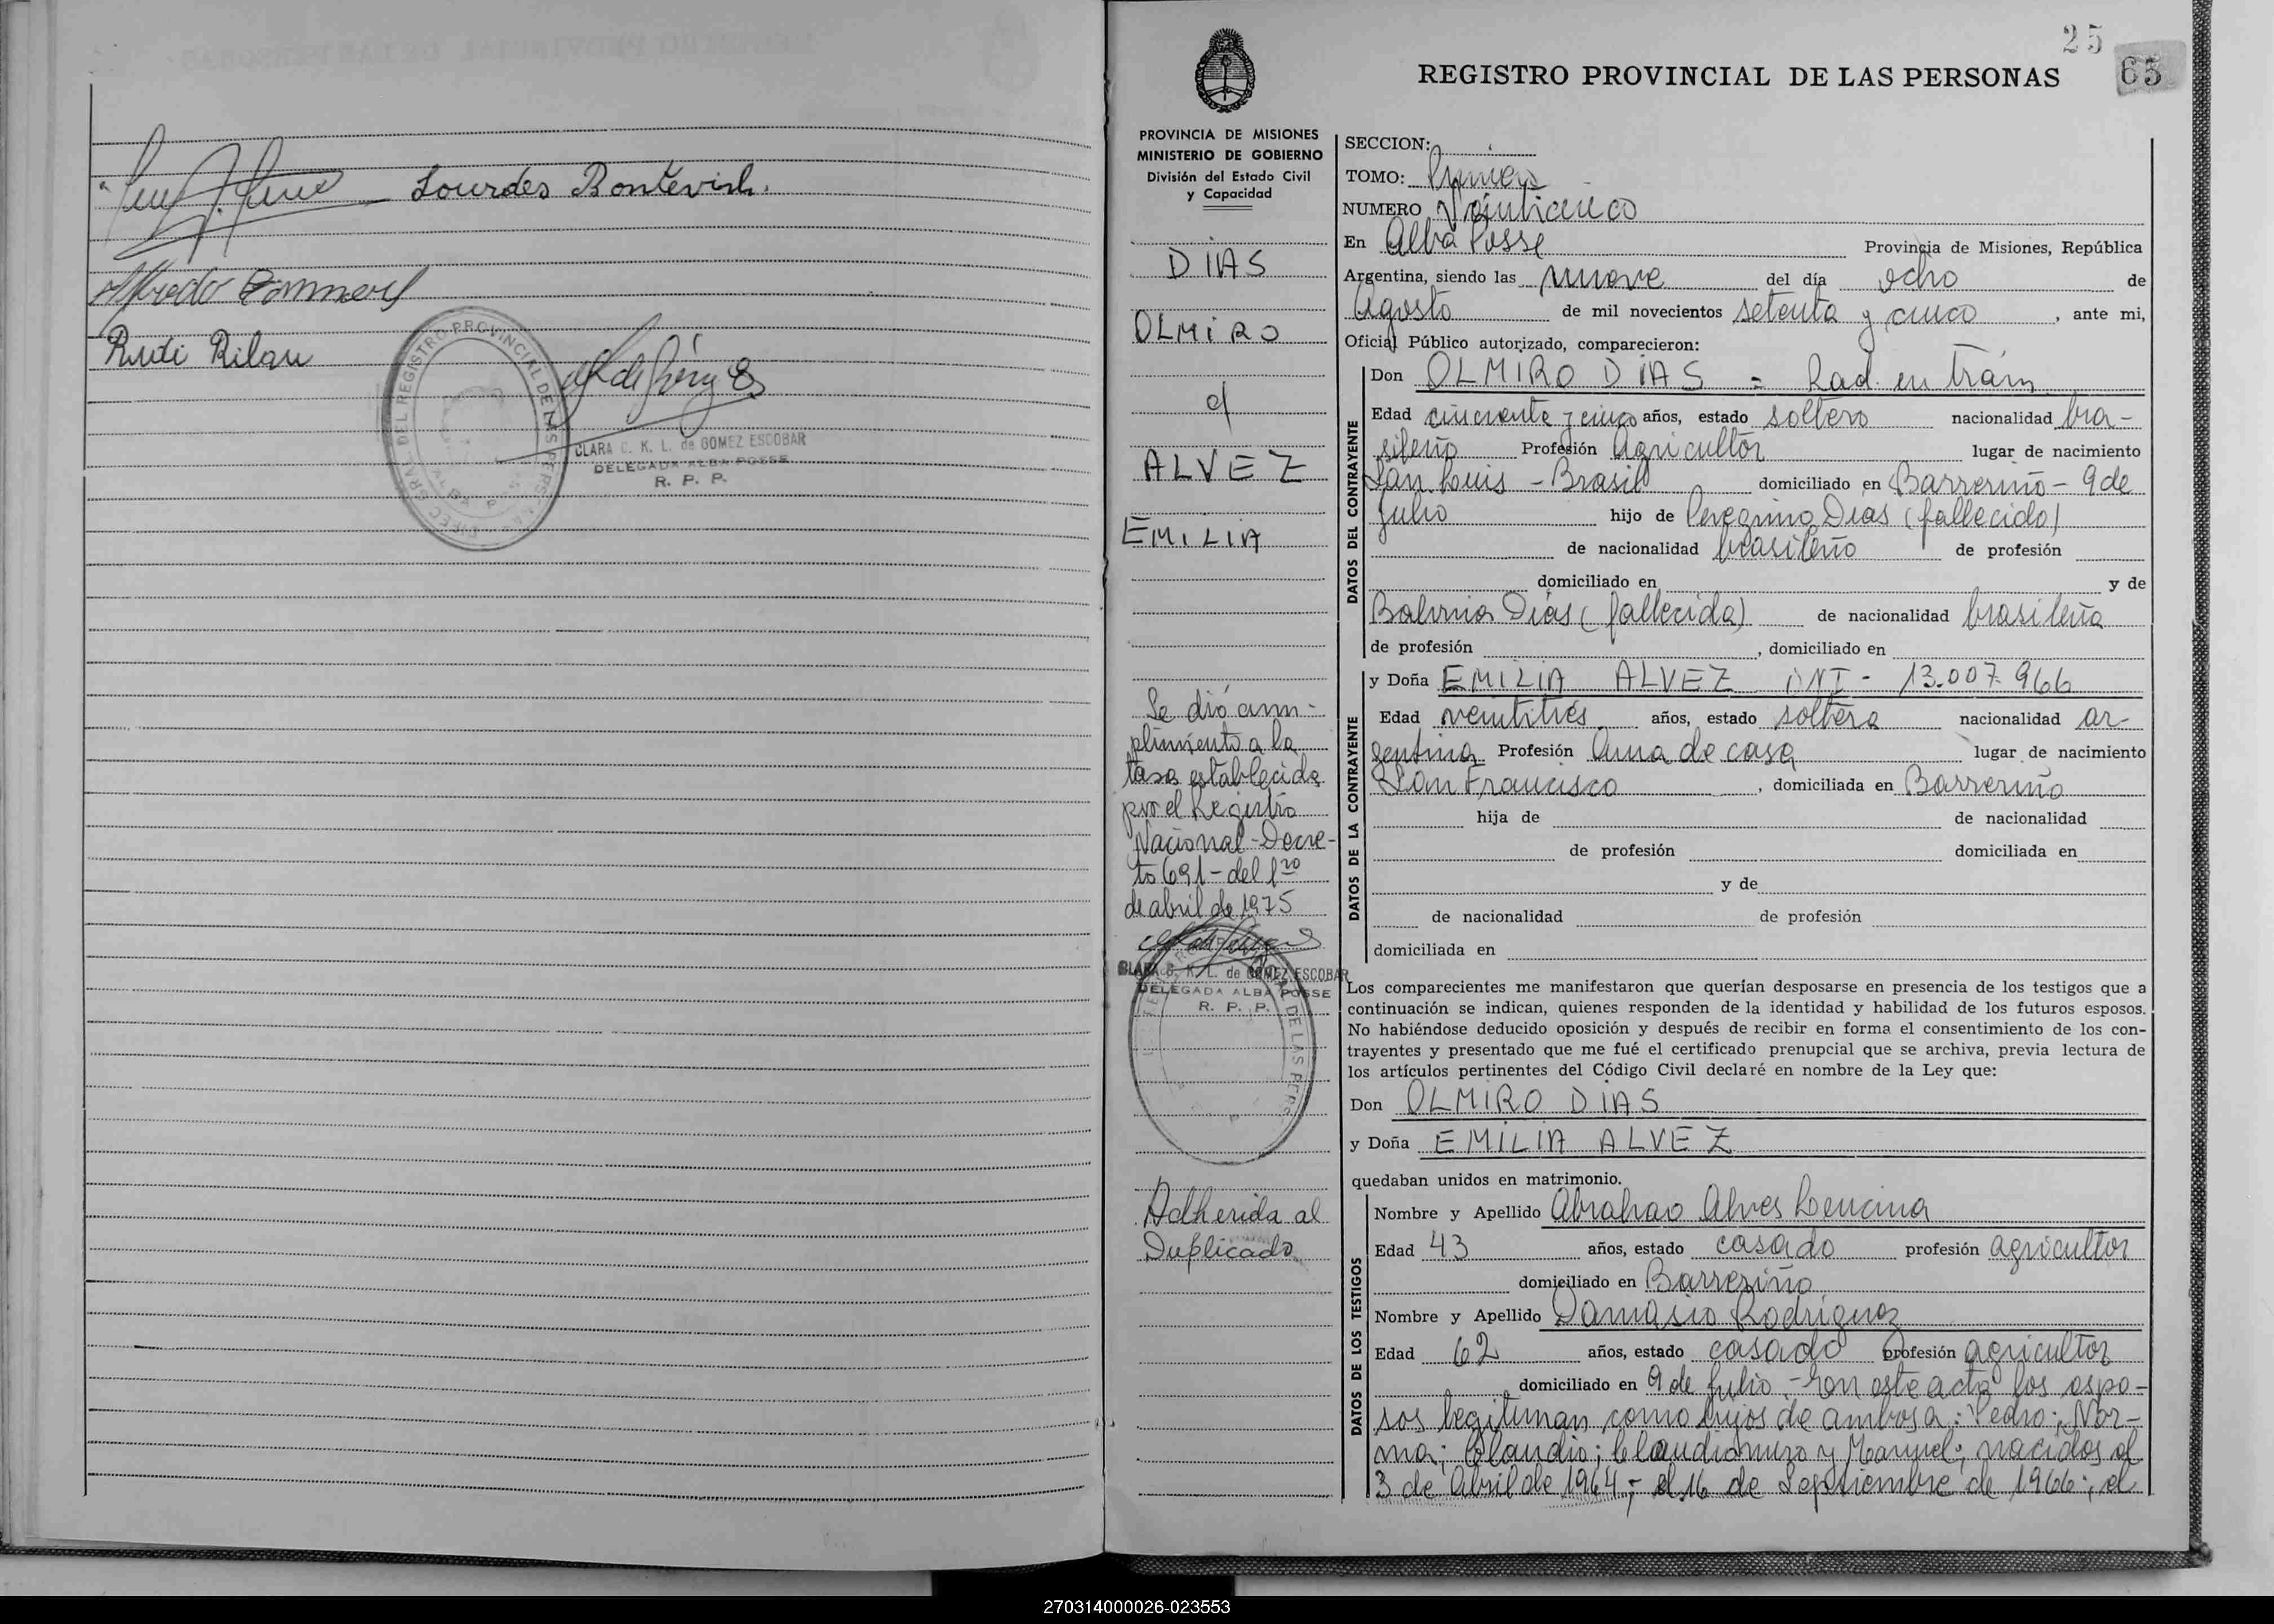 Lourdes Bontevich.
Alfredo
Rudi Rilau
DIREC. GRAL. DEL REGISTRO PROVINCIAL DE LAS PERS
ALBA POSSE
CLARA C. K. L. de GOMEZ ESCOBAR
DELEGADA ALBA POSSE
R. P. P.
25
65
REGISTRO PROVINCIAL DE LAS PERSONAS
PROVINCIA DE MISIONES
MINISTERIO DE GOBIERNO
División del Estado Civil
y Capacidad
DIAS
OLMIRO
c/
ALVEZ
EMILIA
Se dió cum-
plimiento a la
tasa establecida
por el Registro
Nacional - Decre-
to 691 - del 1ro
de abril de 1975
CLARA C. K. L. de GOMEZ ESCOBAR
DELEGADA ALBA POSSE
R. P. P.
Adherida al
Duplicado
SECCION:
TOMO: Primero
NUMERO Veinticinco
En Alba Posse Provincia de Misiones, República
Argentina, siendo las nueve del día ocho de
Agosto de mil novecientos setenta y cinco, ante mi,
Oficial Público autorizado, comparecieron:
DATOS DEL CONTRAYENTE
Don OLMIRO DIAS = Rad. en trám
Edad cincuenta y cinco años, estado soltero nacionalidad bra-
sileño Profesión Agricultor lugar de nacimiento
San Louis - Brasil domiciliado en Barreriño - 9 de
Julio hijo de Peregrino Dias (fallecido)
de nacionalidad brasileño de profesión
domiciliado en y de
Balvina Dias (fallecida) de nacionalidad brasileña
de profesión , domiciliado en
DATOS DE LA CONTRAYENTE
y Doña EMILIA ALVEZ DNI - 13.007.966
Edad veintitres años, estado soltera nacionalidad ar-
gentina Profesión Ama de casa lugar de nacimiento
San Francisco , domiciliada en Barreriño
hija de de nacionalidad
de profesión domiciliada en
y de
de nacionalidad de profesión
domiciliada en
Los comparecientes me manifestaron que querían desposarse en presencia de los testigos que a
continuación se indican, quienes responden de la identidad y habilidad de los futuros esposos.
No habiéndose deducido oposición y después de recibir en forma el consentimiento de los con-
trayentes y presentado que me fué el certificado prenupcial que se archiva, previa lectura de
los artículos pertinentes del Código Civil declaré en nombre de la Ley que:
Don OLMIRO DIAS
y Doña EMILIA ALVEZ
quedaban unidos en matrimonio.
DATOS DE LOS TESTIGOS
Nombre y Apellido Abrahao Alves Lencina
Edad 43 años, estado casado profesión agricultor
domiciliado en Barreriño
Nombre y Apellido Damasio Rodriguez
Edad 62 años, estado casado profesión agricultor
domiciliado en 9 de Julio. - Con este acta los espo-
sos legitiman como hijos de ambos a: Pedro; Nor-
ma; Claudio; Claudiomiro y Manuel; nacidos el
3 de Abril de 1964; el 16 de Septiembre de 1966; el
270314000026-023553